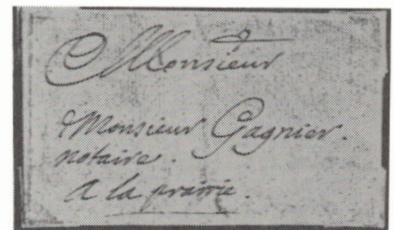 Monsieur
Monsieur Gagnier.
notaire.
a la prairie.